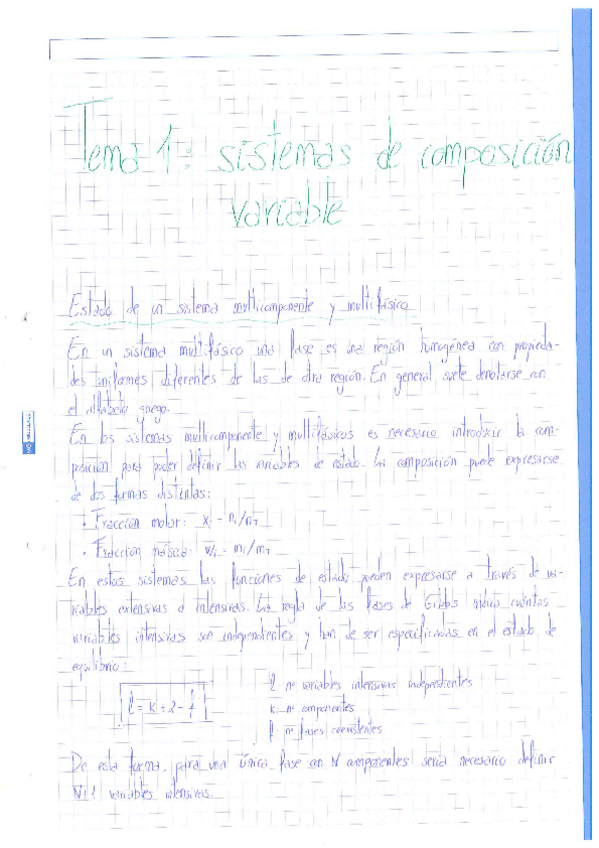 Tema 1: sistemas de composición
variable
Estado de un sistema multicomponente y multifásico
En un sistema multifásico una fase es una región homogénea con propieda-
des uniformes diferentes de las de otra región. En general, suele denotarse con
el alfabeto griego.
En los sistemas multicomponente y multifásicos es necesario introducir la com-
posición para poder definir las variables de estado. La composición puede expresarse
de dos formas distintas:
· Fracción molar: xi = ni/nT
· Fracción másica: wi = mi/mT
En estos sistemas las funciones de estado pueden expresarse a través de va-
riables extensivas o intensivas. La regla de las fases de Gibbs indica cuántas
variables intensivas son independientes y han de ser especificadas en el estado de
equilibrio:
l = k + 2 - f
l: nº variables intensivas independientes
k: nº componentes
f: nº fases coexistentes
De esta forma, para una única fase con N componentes sería necesario definir
N+1 variables intensivas.